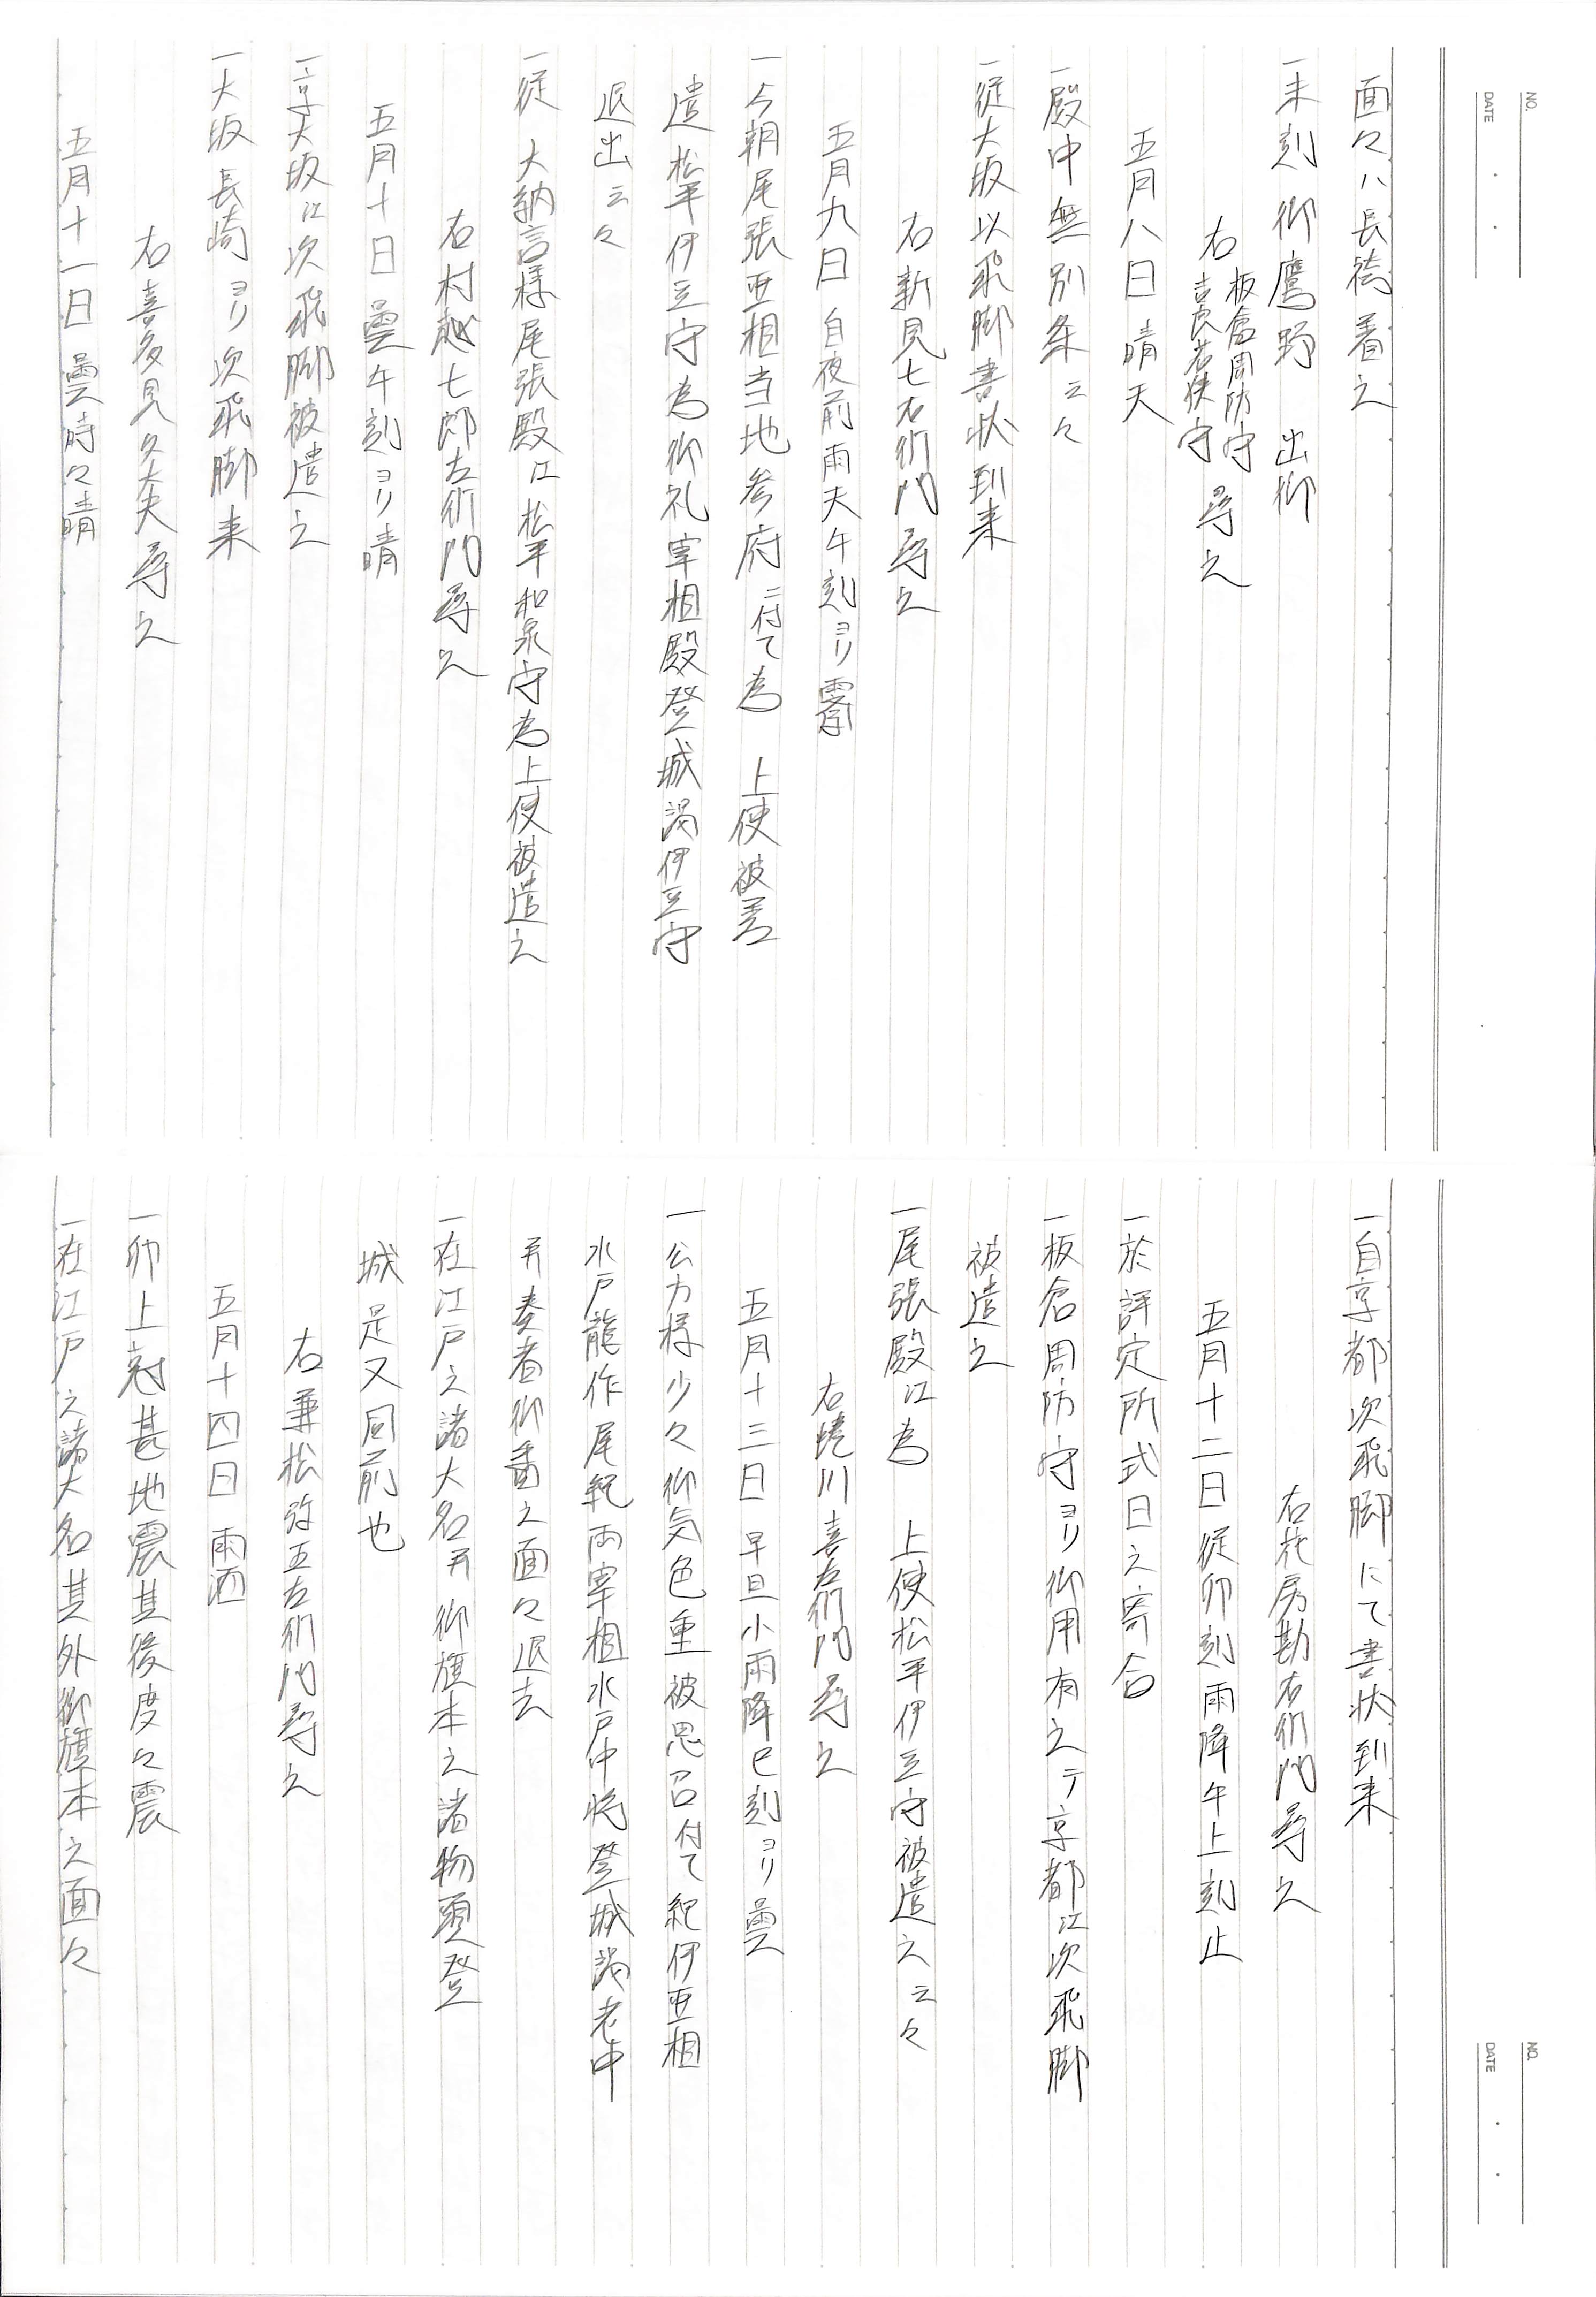 面々ハ長袴着之
一未刻御鷹野　出御
右 板倉周防守 吉良若狭守 尋之
五月八日晴天
一殿中無別条云々
一従大坂以飛脚書状到来
右新見七右衛門尋之
五月九日　自夜前雨天午刻ヨリ霽
一今朝尾張亜相当地参府ニ付て為　上使被差
遣松平伊豆守為御礼宰相殿登城謁伊豆守
退出云々
一従　大納言様尾張殿江松平和泉守為上使被遣之
右村越七郎左衛門尋之
五月十日　曇午刻ヨリ晴
一京大坂江次飛脚被遣之
一大坂長崎ヨリ次飛脚来
右喜多見久大夫尋之
五月十一日　曇時々晴
一自京都次飛脚にて書状到来
右花房勘右衛門尋之
五月十二日従卯刻雨降午上刻止
一於評定所式日之寄合
一板倉周防守ヨリ御用有之テ京都江次飛脚
被遣之
一尾張殿江為　上使松平伊豆守被遣之云々
右蜷川喜左衛門尋之
五月十三日　早旦小雨降巳刻ヨリ曇
一公方様少々御気色重被思召付て紀伊亜相
水戸龍作尾紀両宰相水戸中将登城謁老中
并奏者御番之面々退去
一在江戸之諸大名并御旗本之諸物頭登
城是又同前也
右兼松弥五左衛門尋之
五月十四日　雨洒
一卯上刻甚地震其後度々震
一在江戸之諸大名其外御旗本之面々
NO.
DATE
NO.
DATE